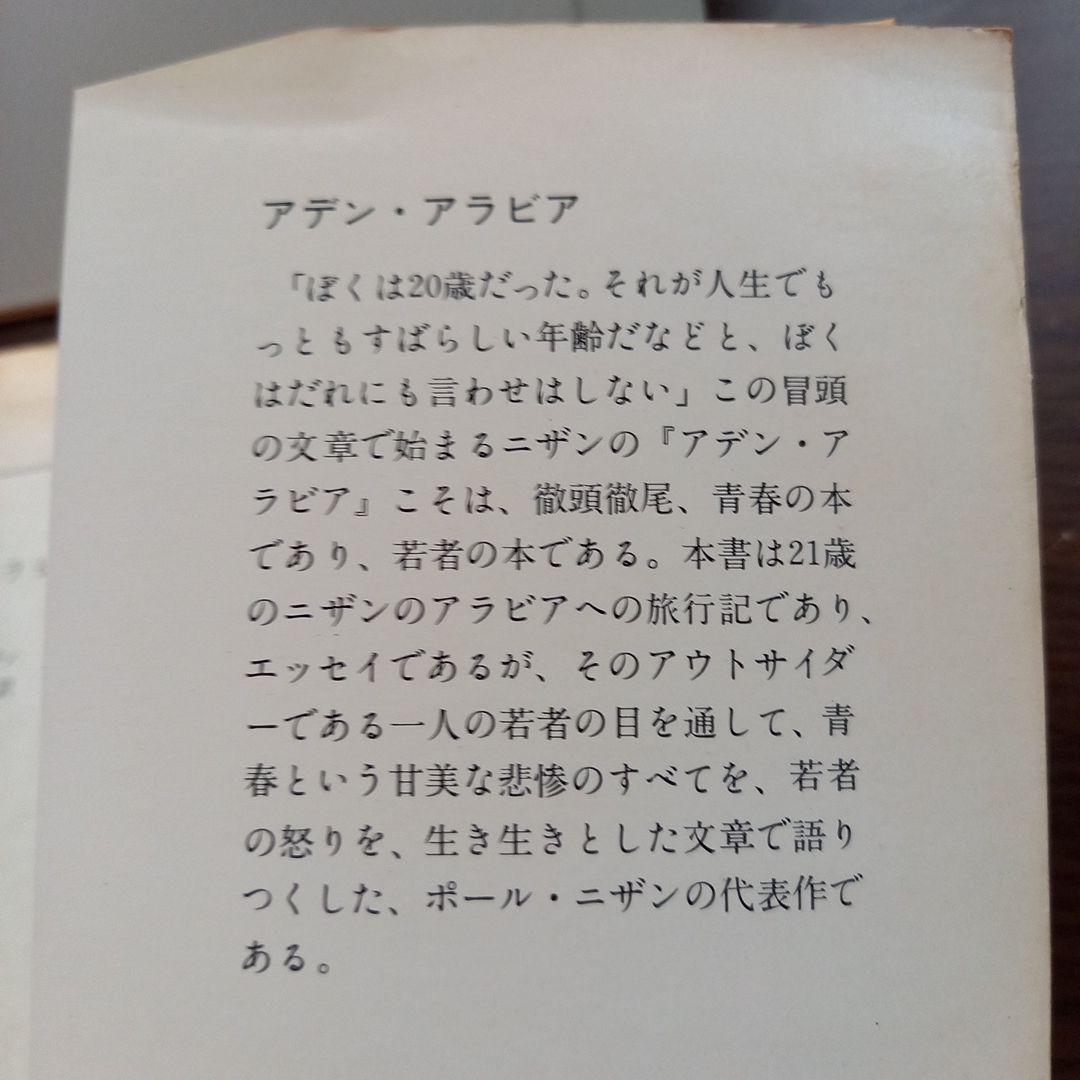 アデン・アラビア
「ぼくは20歳だった。それが人生でも
っともすばらしい年齢だなどと、ぼく
はだれにも言わせはしない」この冒頭
の文章で始まるニザンの『アデン・ア
ラビア』こそは、徹頭徹尾、青春の本
であり、若者の本である。本書は21歳
のニザンのアラビアへの旅行記であり、
エッセイであるが、そのアウトサイダ
ーである一人の若者の目を通して、青
春という甘美な悲惨のすべてを、若者
の怒りを、生き生きとした文章で語り
つくした、ポール・ニザンの代表作で
ある。